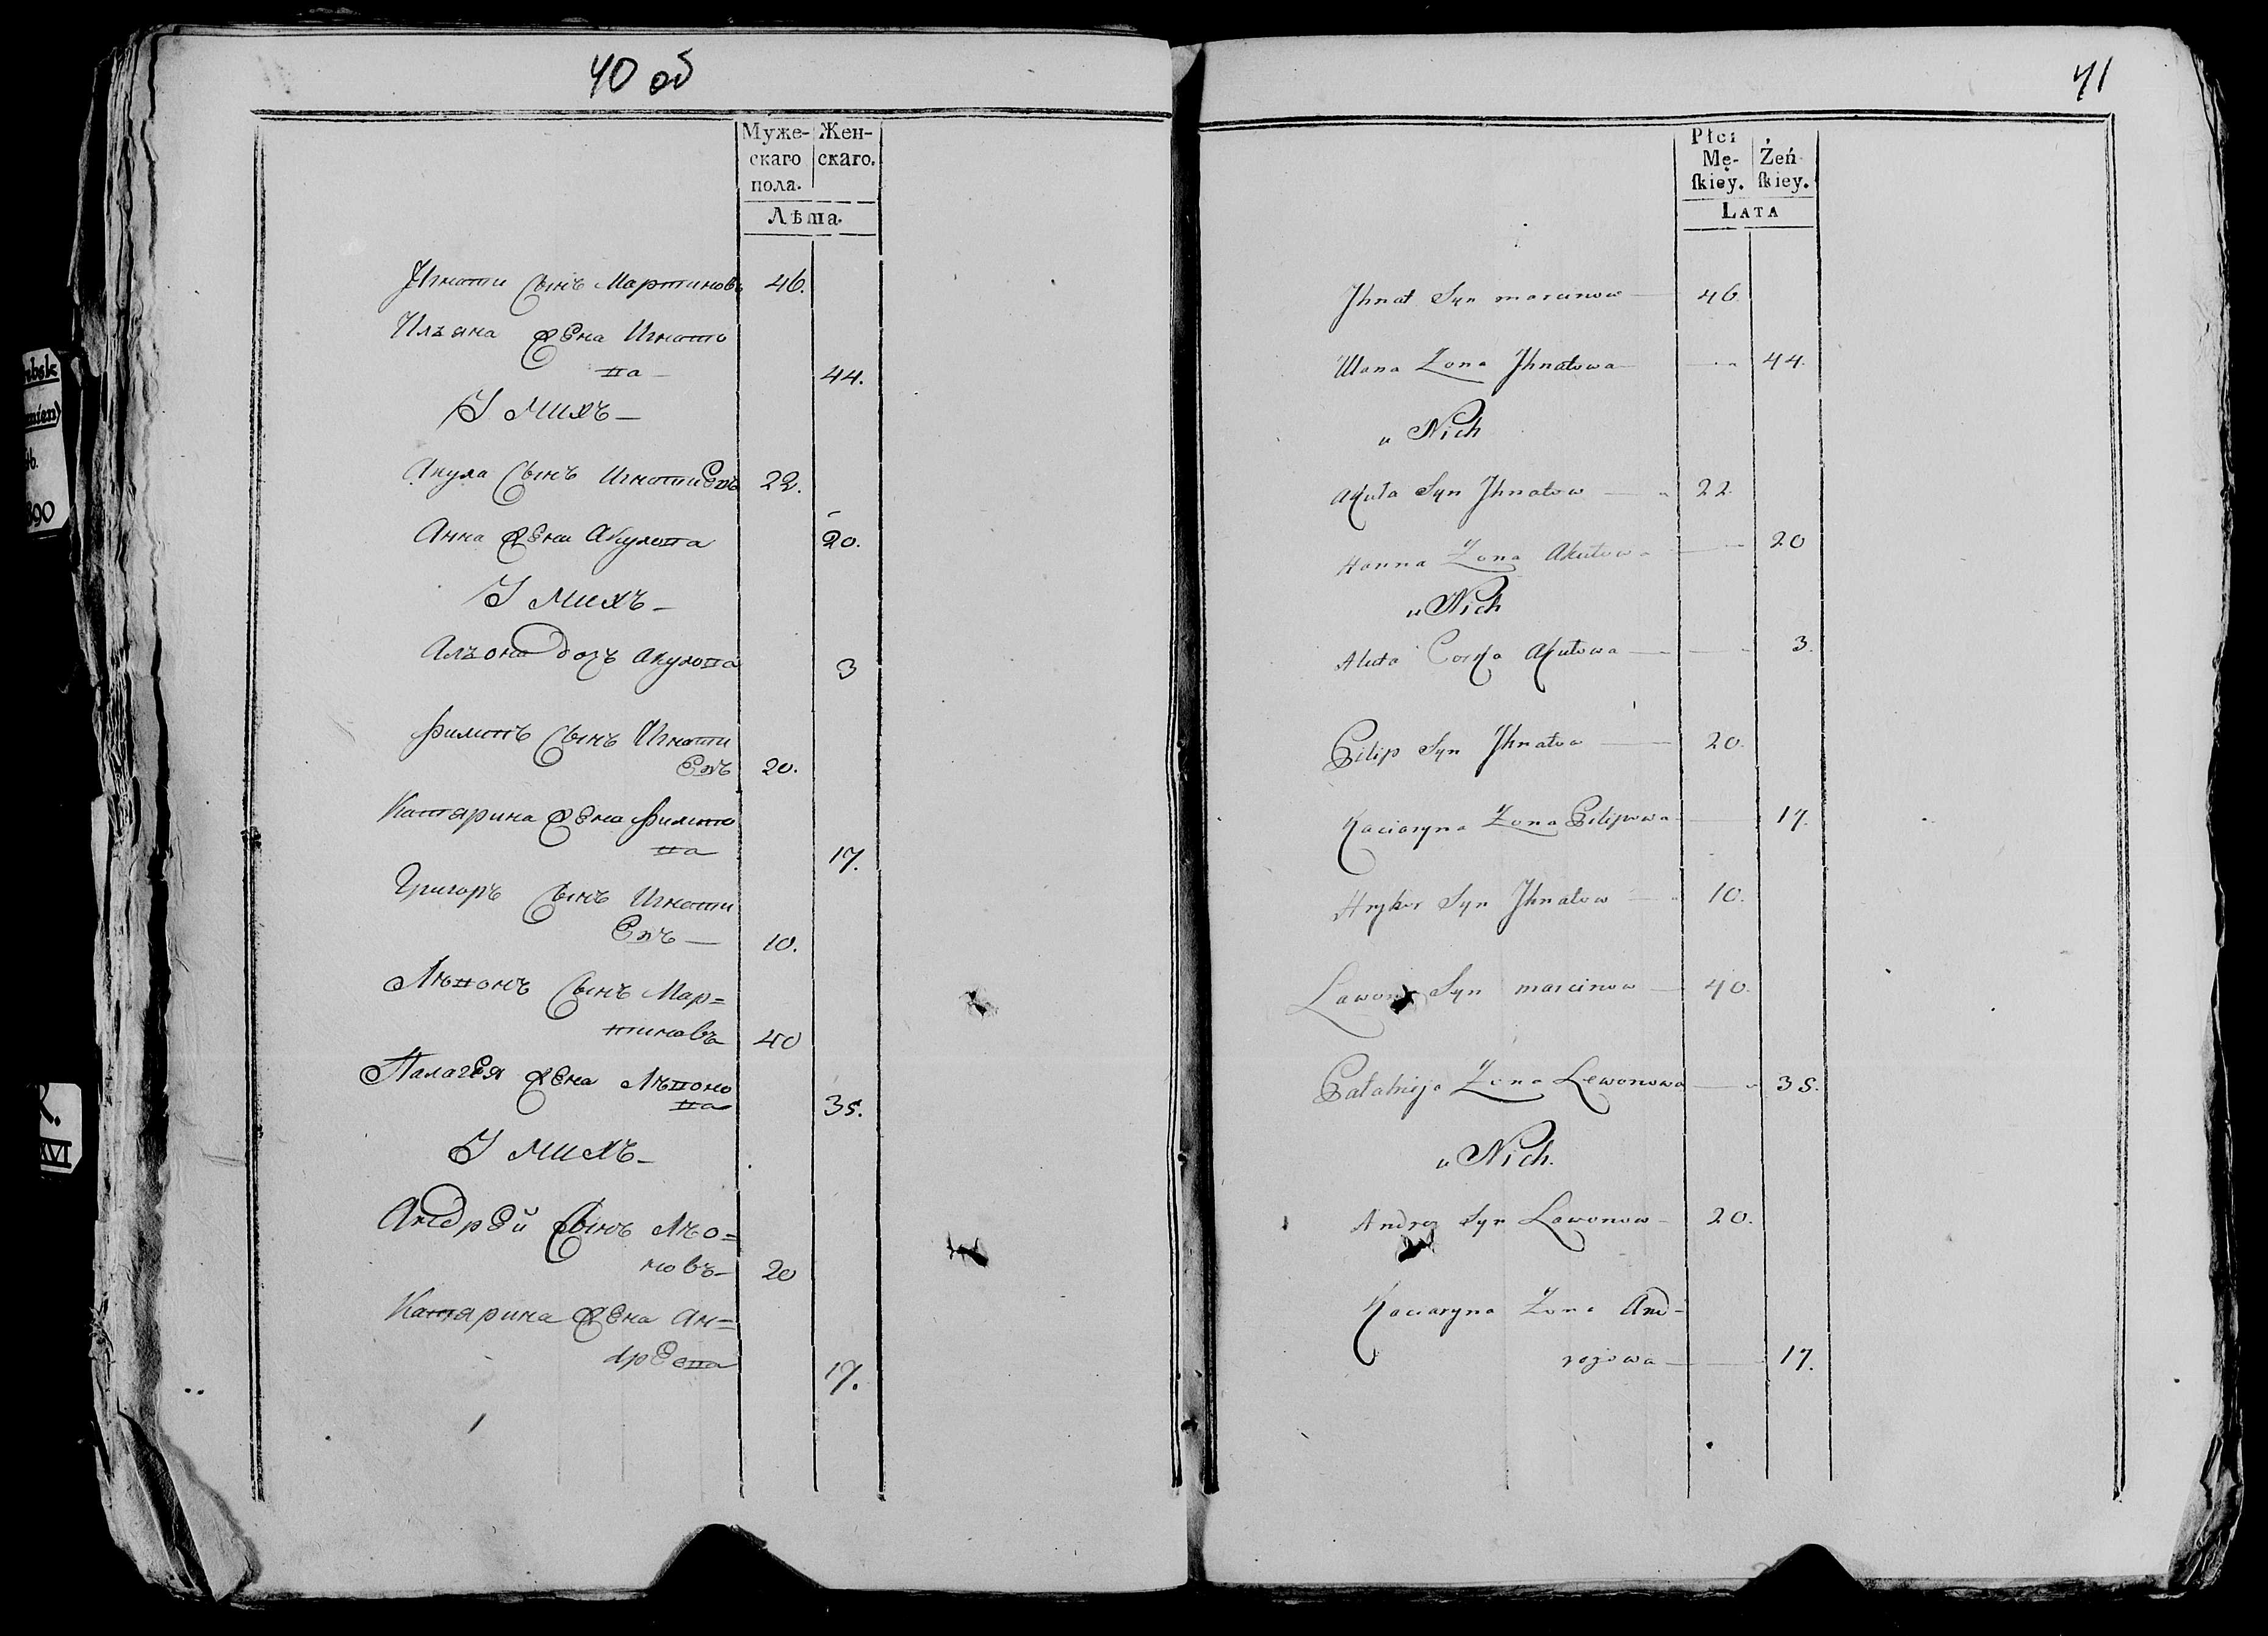 40 об
Муже- Жен-
скаго скаго.
пола.
Лѣта.
Игнати Сынъ Мартиновъ 46.
Илзяна жена Игнато
ва 44.
У Нихъ —
Акула Сынъ Игнатиевъ 22.
Анна жена Акулова 20.
У Нихъ —
Алзона дочъ Акулова 3
Филипъ Сынъ Игнати
евъ 20.
Катярина жена Филипо
ва 17.
Григоръ Сынъ Игнати
евъ — 10.
Лѣвонъ Сынъ Мар=
тиновъ 40
Палагея жена Лѣвоно
ва 35.
У Нихъ —
Андрей Сынъ Лѣо=
новъ 20
Катярина жена Ан=
дреева 17.
41
Płci
Mę- Żeń
ſkiey. ſkiey.
LATA
Jhnat Syn marcinow — 46.
Ulana Zona Jhnatowa — 44.
u Nich
Akuła Syn Jhnatow — 22.
Hanna Zona Akułowa — 20
u Nich
Corka Akułowa — 3.
Pilip Syn Jhnatow — 20.
Kaciaryna Zona Pilipowa — 17.
Hryhor Syn Jhnatow — 10.
Lawon Syn marcinow — 40.
Pałahija Zona Lewonowa — 35.
u Nich.
Andrey Syn Lawonow — 20.
Kaciaryna Zona And-
rejowa — 17.